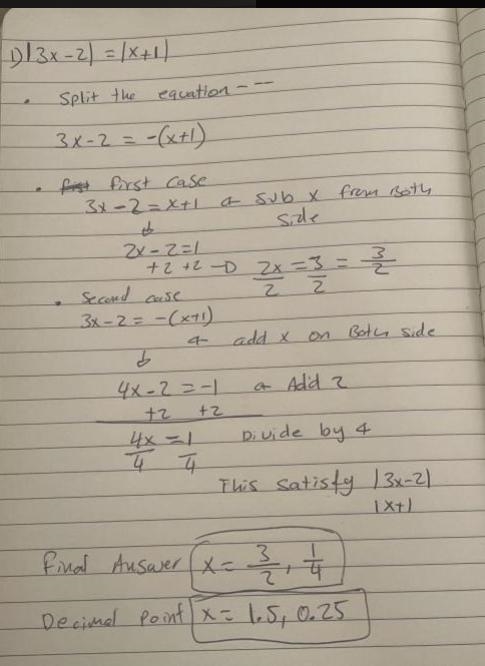 1) |3x-2| = |x+1|
• Split the equation ---
3x-2 = -(x+1)
• first case
3x-2 = x+1 ← sub x from Both side
↓
2x-2=1
+2 +2 → 2x/2 = 3/2 = 3/2
• Second case
3x-2 = -(x+1)
← add x on Both side
↓
4x-2 = -1 ← Add 2
+2 +2
4x/4 = 1/4 Divide by 4
This satisfy |3x-2|
|x+1
Final Answer x = 3/2, 1/4
Decimal Point x = 1.5, 0.25